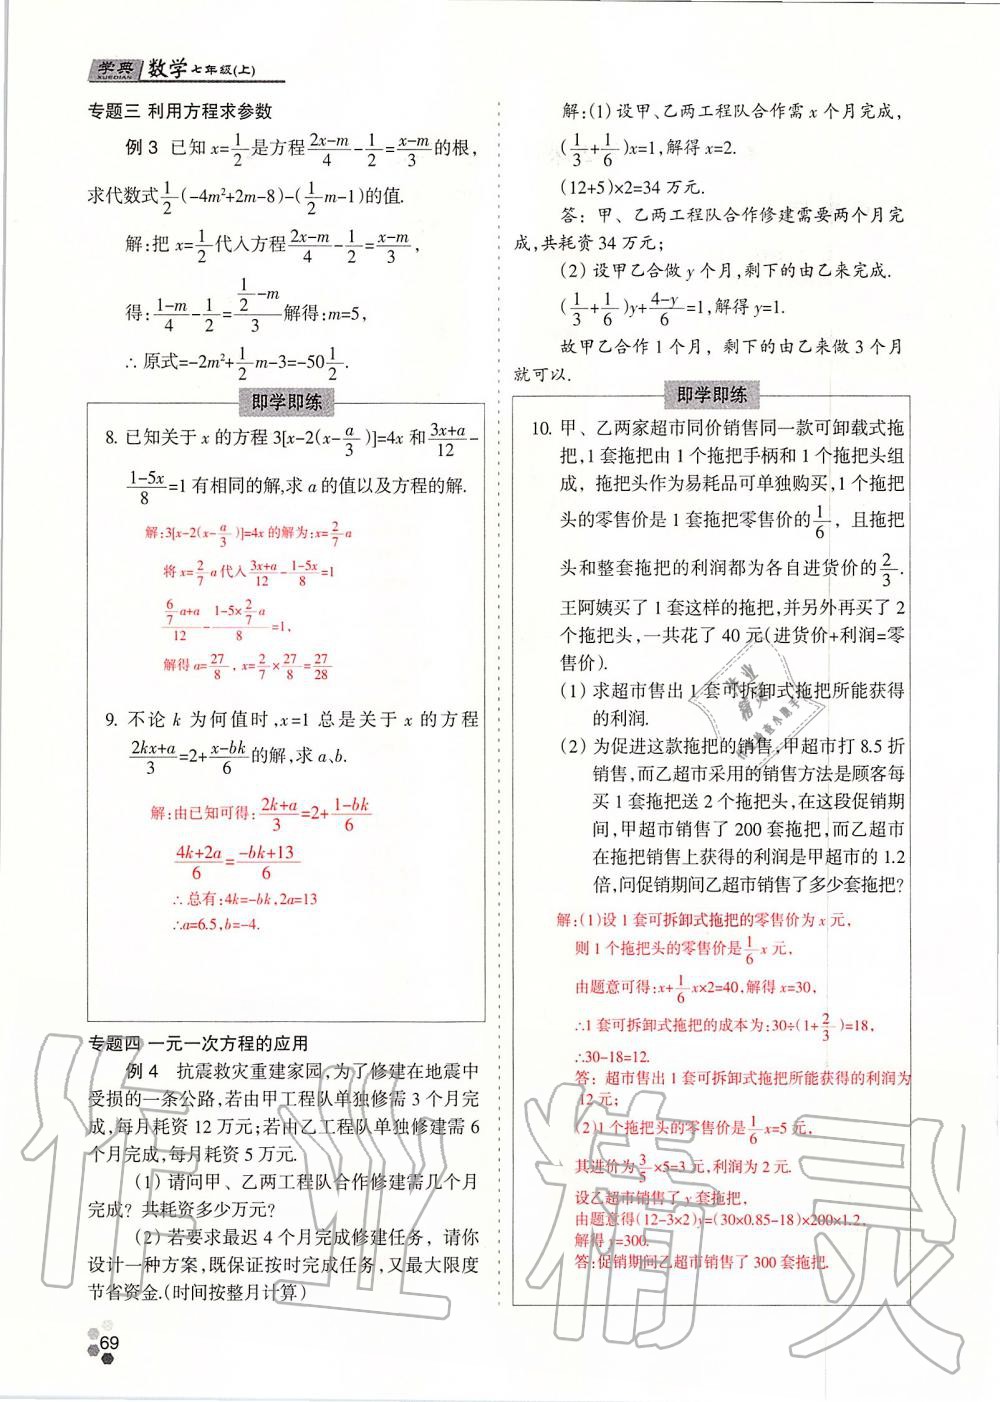 学典 数学 七年级(上)
XUEDIAN
专题三 利用方程求参数
例3 已知 x=1/2 是方程 (2x-m)/4 - 1/2 = (x-m)/3 的根，
求代数式 1/2(-4m²+2m-8)-(1/2 m-1)的值.
解:把 x=1/2 代入方程 (2x-m)/4 - 1/2 = (x-m)/3 ，
得: (1-m)/4 - 1/2 = (1/2 - m)/3 解得:m=5，
∴原式=-2m²+1/2 m-3=-50 1/2.
即学即练
8. 已知关于 x 的方程 3[x-2(x-a/3)]=4x 和 (3x+a)/12 -
(1-5x)/8 =1 有相同的解,求 a 的值以及方程的解.
解:3[x-2(x-a/3)]=4x 的解为:x=2/7 a
将 x=2/7 a 代入 (3x+a)/12 - (1-5x)/8 =1
(6/7 a+a)/12 - (1-5×2/7 a)/8 =1，
解得 a=27/8 ，x=2/7×27/8=27/28
9. 不论 k 为何值时,x=1 总是关于 x 的方程
(2kx+a)/3 =2+ (x-bk)/6 的解,求 a、b.
解:由已知可得: (2k+a)/3 =2+ (1-bk)/6
(4k+2a)/6 = (-bk+13)/6
∴总有:4k=-bk,2a=13
∴a=6.5,b=-4.
专题四 一元一次方程的应用
例4 抗震救灾重建家园,为了修建在地震中
受损的一条公路,若由甲工程队单独修需 3 个月完
成,每月耗资 12 万元;若由乙工程队单独修建需 6
个月完成,每月耗资 5 万元.
(1) 请问甲、乙两工程队合作修建需几个月
完成? 共耗资多少万元?
(2) 若要求最迟 4 个月完成修建任务，请你
设计一种方案,既保证按时完成任务,又最大限度
节省资金.(时间按整月计算)
69
解:(1)设甲、乙两工程队合作需 x 个月完成，
(1/3+1/6)x=1,解得 x=2.
(12+5)×2=34 万元.
答: 甲、乙两工程队合作修建需要两个月完
成,共耗资 34 万元;
(2) 设甲乙合做 y 个月,剩下的由乙来完成.
(1/3+1/6)y+(4-y)/6=1,解得 y=1.
故甲乙合作 1 个月，剩下的由乙来做 3 个月
就可以.
即学即练
10. 甲、乙两家超市同价销售同一款可卸载式拖
把,1 套拖把由 1 个拖把手柄和 1 个拖把头组
成，拖把头作为易耗品可单独购买,1 个拖把
头的零售价是 1 套拖把零售价的 1/6，且拖把
头和整套拖把的利润都为各自进货价的 2/3.
王阿姨买了 1 套这样的拖把,并另外再买了 2
个拖把头,一共花了 40 元(进货价+利润=零
售价).
(1) 求超市售出 1 套可拆卸式拖把所能获得
的利润.
(2) 为促进这款拖把的销售,甲超市打 8.5 折
销售,而乙超市采用的销售方法是顾客每
买 1 套拖把送 2 个拖把头,在这段促销期
间,甲超市销售了 200 套拖把,而乙超市
在拖把销售上获得的利润是甲超市的 1.2
倍,问促销期间乙超市销售了多少套拖把?
解:(1)设 1 套可拆卸式拖把的零售价为 x 元，
则 1 个拖把头的零售价是 1/6 x 元，
由题意可得:x+1/6 x×2=40,解得 x=30，
∴1 套可拆卸式拖把的成本为:30÷(1+2/3)=18，
∴30-18=12.
答: 超市售出 1 套可拆卸式拖把所能获得的利润为
12 元;
(2)1 个拖把头的零售价是 1/6 x=5 元，
其进价为 3/5×5=3 元,利润为 2 元.
设乙超市销售了 y 套拖把，
由题意得(12-3×2)y=(30×0.85-18)×200×1.2，
解得 y=300.
答:促销期间乙超市销售了 300 套拖把.
作业精灵